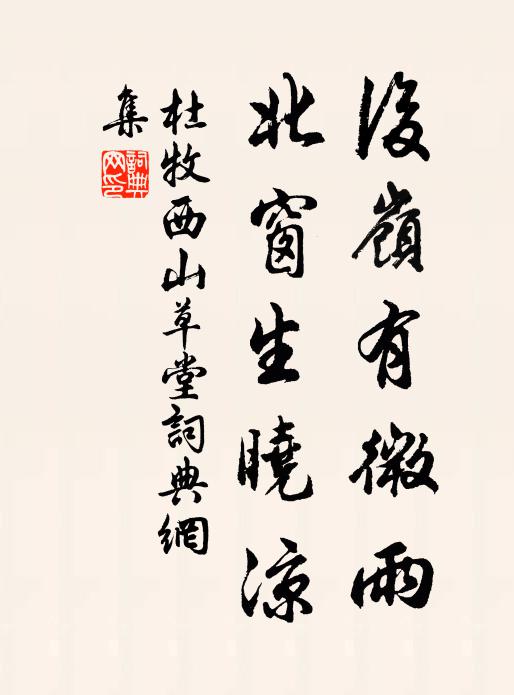 後嶺有微雨
北窗生曉涼
杜牧西山草堂詞典網
集
詞典网印